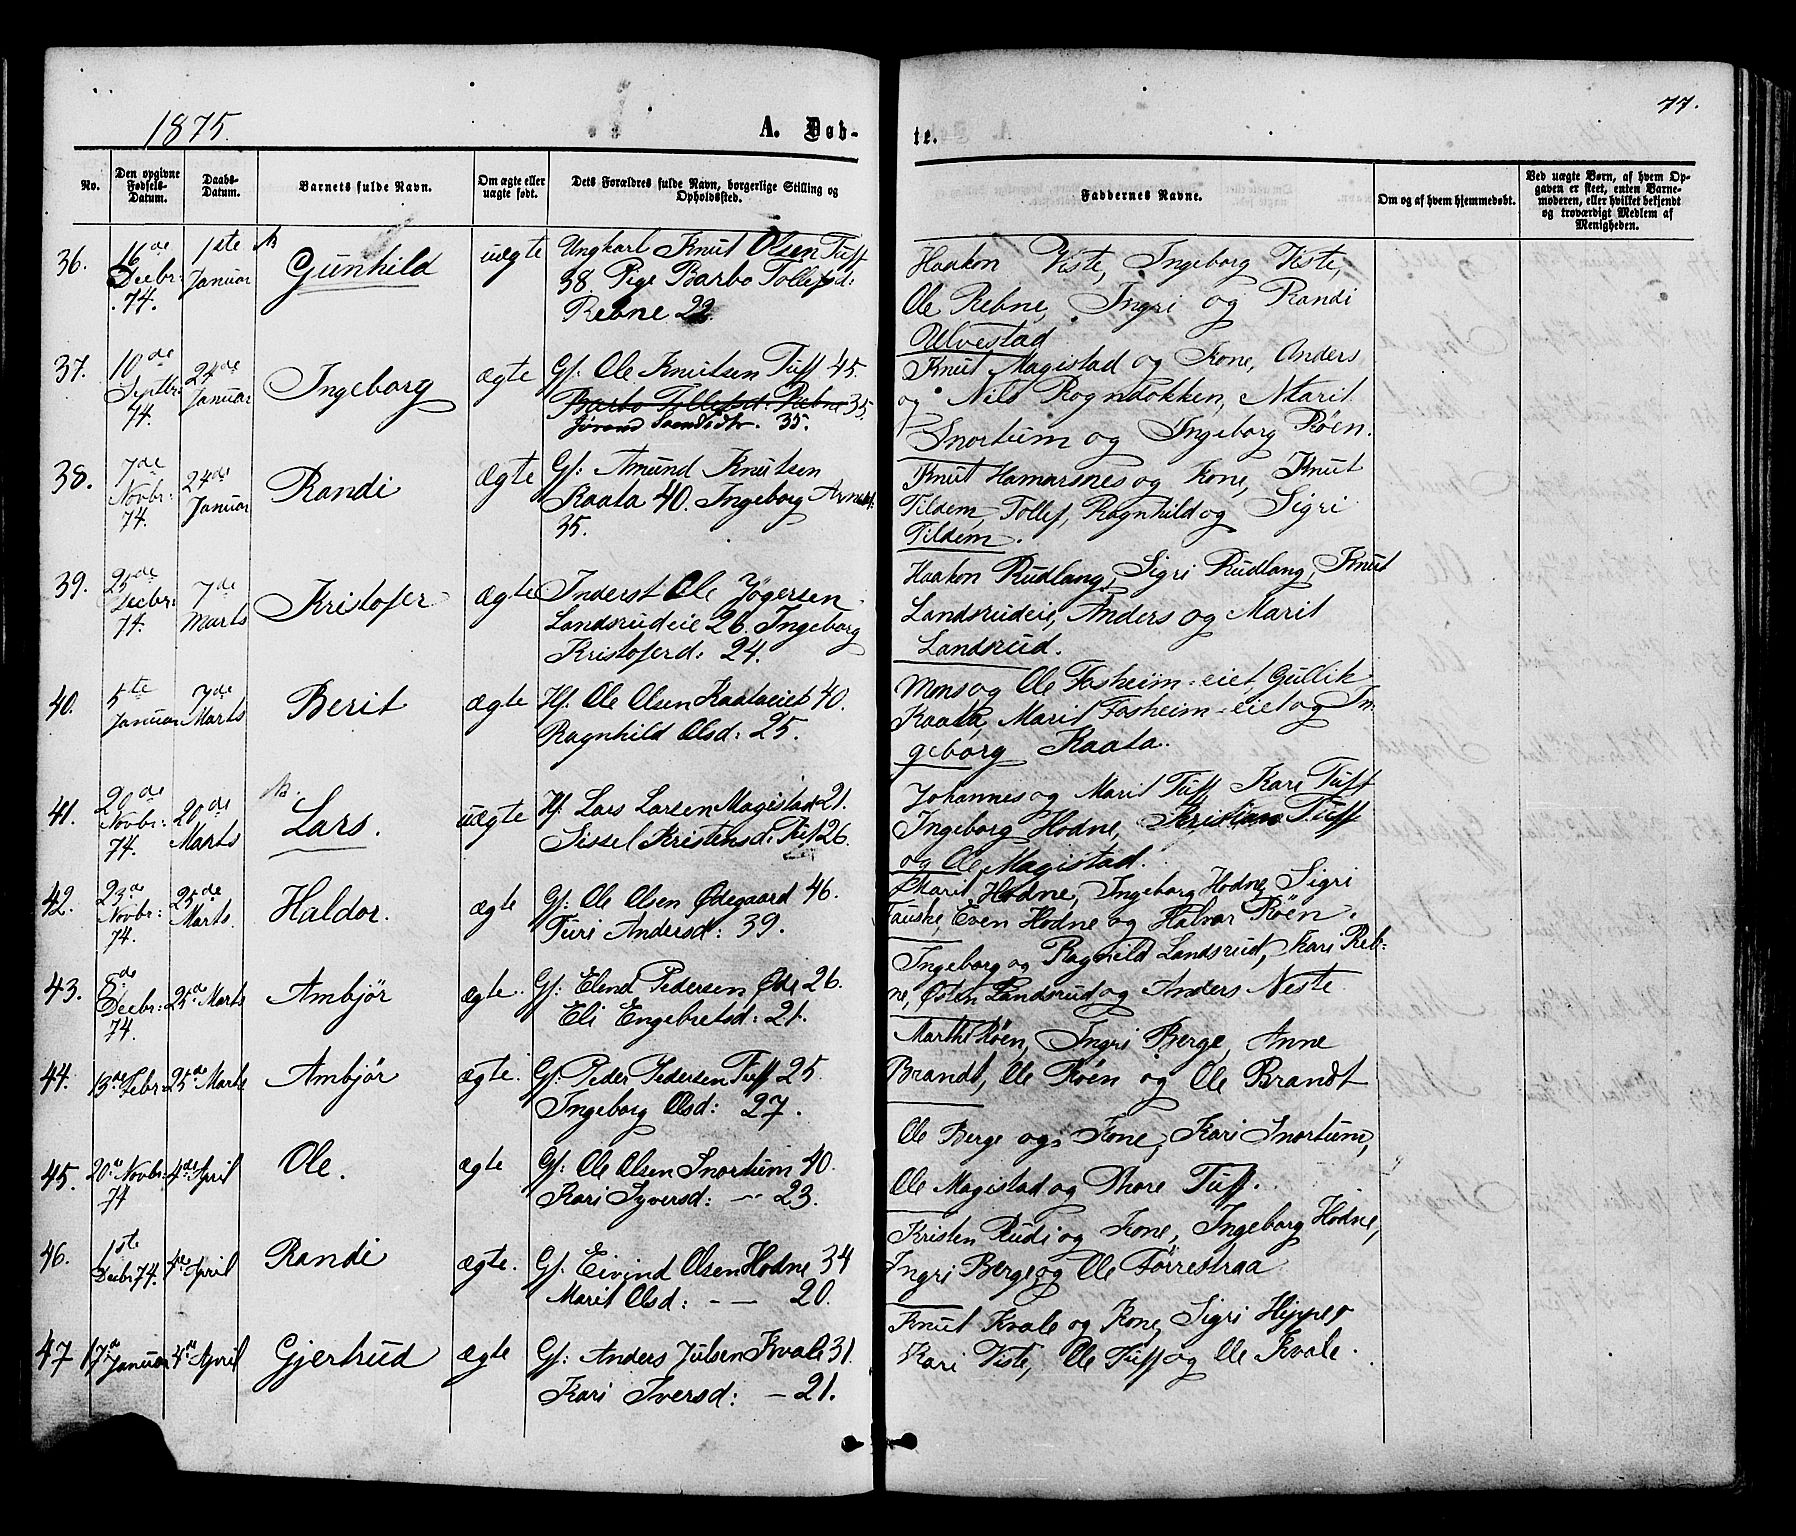 1875.
A. Døb-
te.
77.
No.
Den opgivne Fødsels-Datum.
Daabs-Datum.
Barnets fulde Navn.
Om ægte eller uægte født.
Dets Forældres fulde Navn, borgerlige Stilling og Opholdssted.
Faddernes Navne.
Om og af hvem hjemmedøbt.
Ved uægte Børn, af hvem Op-
gaven er skeet, enten Barne-
moderen, eller hvilket bekjendt
og troværdigt Medlem af
Menigheden.
36. 16de Decbr: 74. 1ste Januar Gunhild uægte
Ungkarl Knut Olsen Tuff
38. Pige Barbo Tollefsd:
Rebne 22.
Haakon Viste, Ingeborg Viste,
Ole Rebne, Ingri og Randi
Ulvestad
37. 10de Septbr 74. 24de Januar Ingeborg ægte
Gf: Ole Knutsen Tuff 45.
Barbo Tollefsd: Rebne 35.
Jørand Svendsdtr. 35.
Knut Magistad og Kone, Anders
og Nils Rogndokken, Marit
Snortum og Ingeborg Røen.
38. 7de Novbr: 74. 24de Januar Randi ægte
Gf: Amund Knutsen
Raata 40. Ingeborg
35.
Knut Hamarsnes og Kone, Knut
Tildem, Tollef, Ragnhild og Sigri
Tildem.
39. 25de Decbr: 74. 7de Marts Kristofer ægte
Inderst Ole Jøgersen
Landsrudeie 26. Ingeborg
Kristoferd: 24.
Haakon Rudlang, Sigri Rudlang, Knut
Landsrudeie, Anders og Marit
Landsrud.
40. 5te Januar 7de Marts Berit ægte
Hf. Ole Olsen Raataeiet 40.
Ragnhild Olsd: 25.
Mons og Ole Fosheim-eiet Gullik
Raata, Marit Fosheim-eiet og In
geborg Raata.
41. 20de Novbr: 74. 20de Marts Lars. uægte
Hf. Lars Larsen Magistad 21.
Sissel Kristensd: Tuf 26.
Johannes og Marit Tuff Kari Tuff
Ingeborg Hodne, Kristian Tuff
og Ole Magistad.
42. 23de Novbr: 74. 25de Marts Haldor. ægte
Gf: Ole Olsen Ødegaard 46.
Turi Andersd: 39.
Marit Hodne, Ingeborg Hodne, Sigri
Fauske, Even Hodne og Halvor Røen.
43. 8de Decbr: 74 25de Marts Ambjør ægte.
Gf: Elend Pedersen Øde 26.
Eli Engebretsd: 21.
Ingeborg og Ragnild Landsrud, Kari Reb-
ne, Østen Landsrud og Anders Neste
44. 13de Febr: 25de Marts Ambjør ægte.
Gf: Peder Pedersen Tuff 25.
Ingeborg Olsd: 27.
Marthe Røen, Ingri Berge, Anne
Brandt, Ole Røen og Ole Brandt
45. 20de Novbr: 74 4de April Ole. ægte
Gf: Ole Olsen Snortum 40.
Kari Syversd: -- 23.
Ole Berge ogs Kone, Kari Snortum,
Ole Magistad og Thore Tuff.
46. 1ste Decbr 74. 4de April Randi ægte.
Gf. Eivind Olsen Hodne 34
Marit Olsd: -- 20.
Kristen Rudi og Kone, Ingeborg Hodne,
Ingri Berge og Ole Førrestraa
47 17de Januar 4de April Gjertrud ægte
Gf: Anders Julsen Kvale 31.
Kari Iversd: - 21.
Knut Kvale og Kone, Sigri Hippes
Kari Viste, Ole Tuff og Ole Kvale.